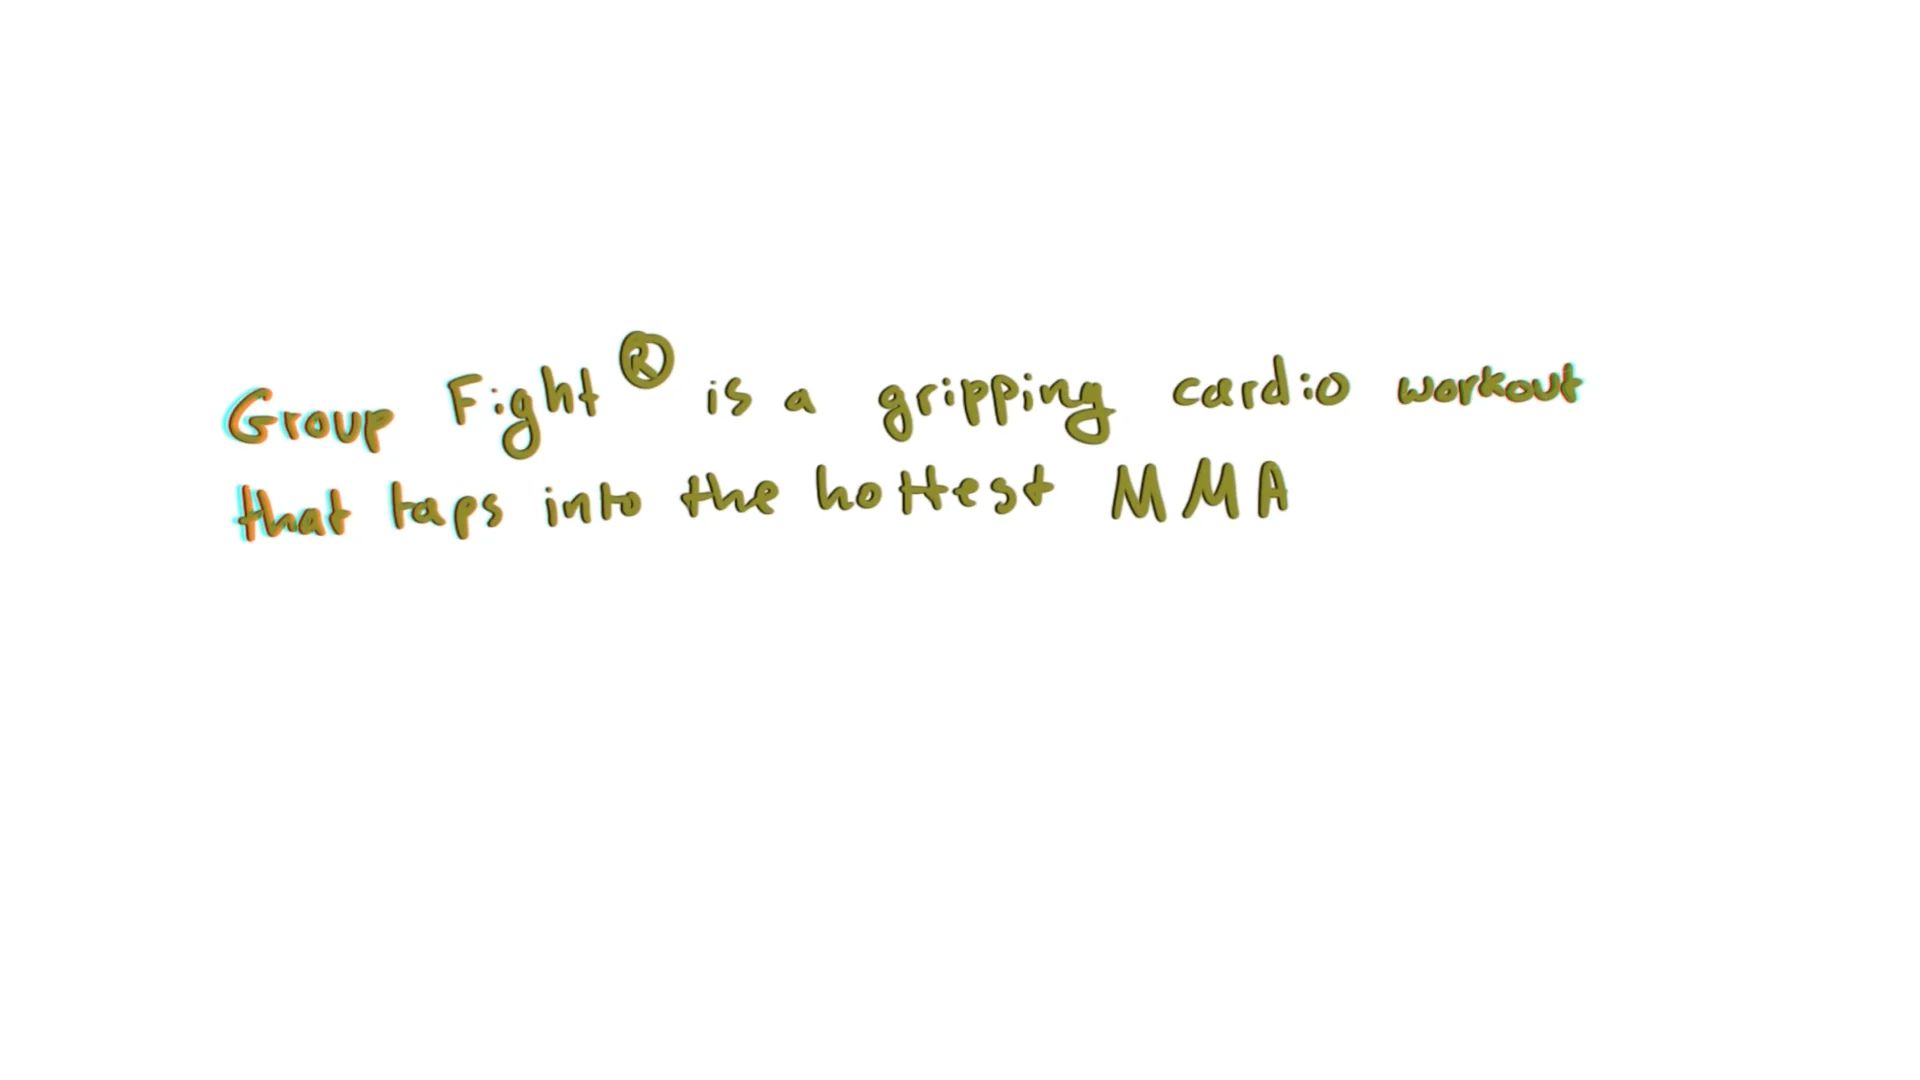 Group Fight® is a gripping cardio workout
that taps into the hottest MMA